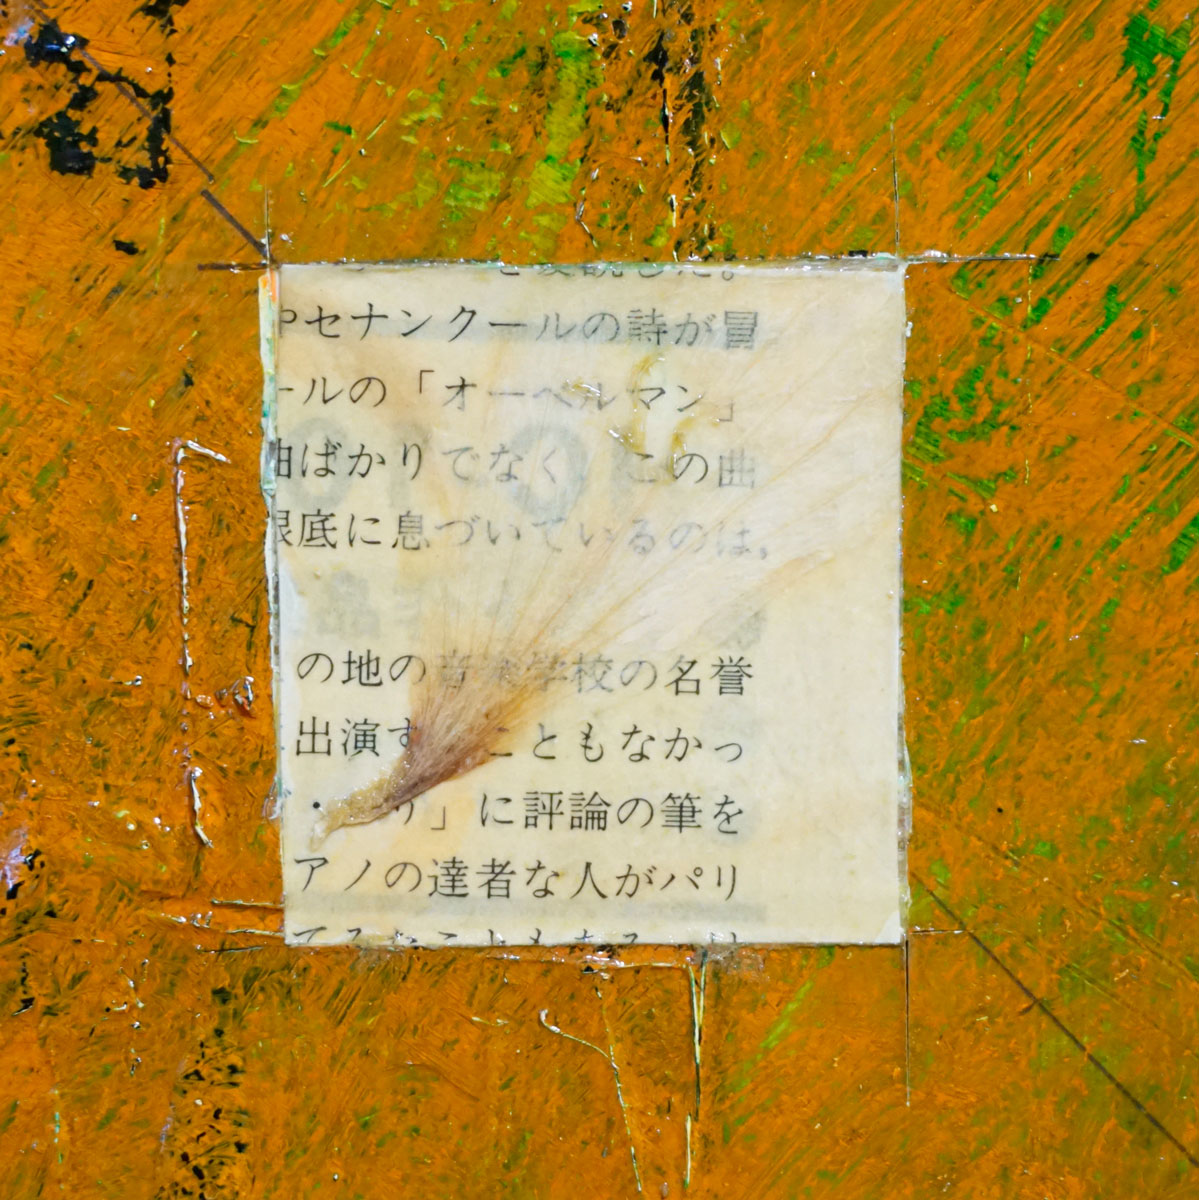 を愛読した。
やセナンクールの詩が冒
ールの「オーベルマン」
曲ばかりでなく この曲
根底に息づいているのは,
の地の音楽学校の名誉
出演することもなかっ
り」に評論の筆を
アノの達者な人がパリ